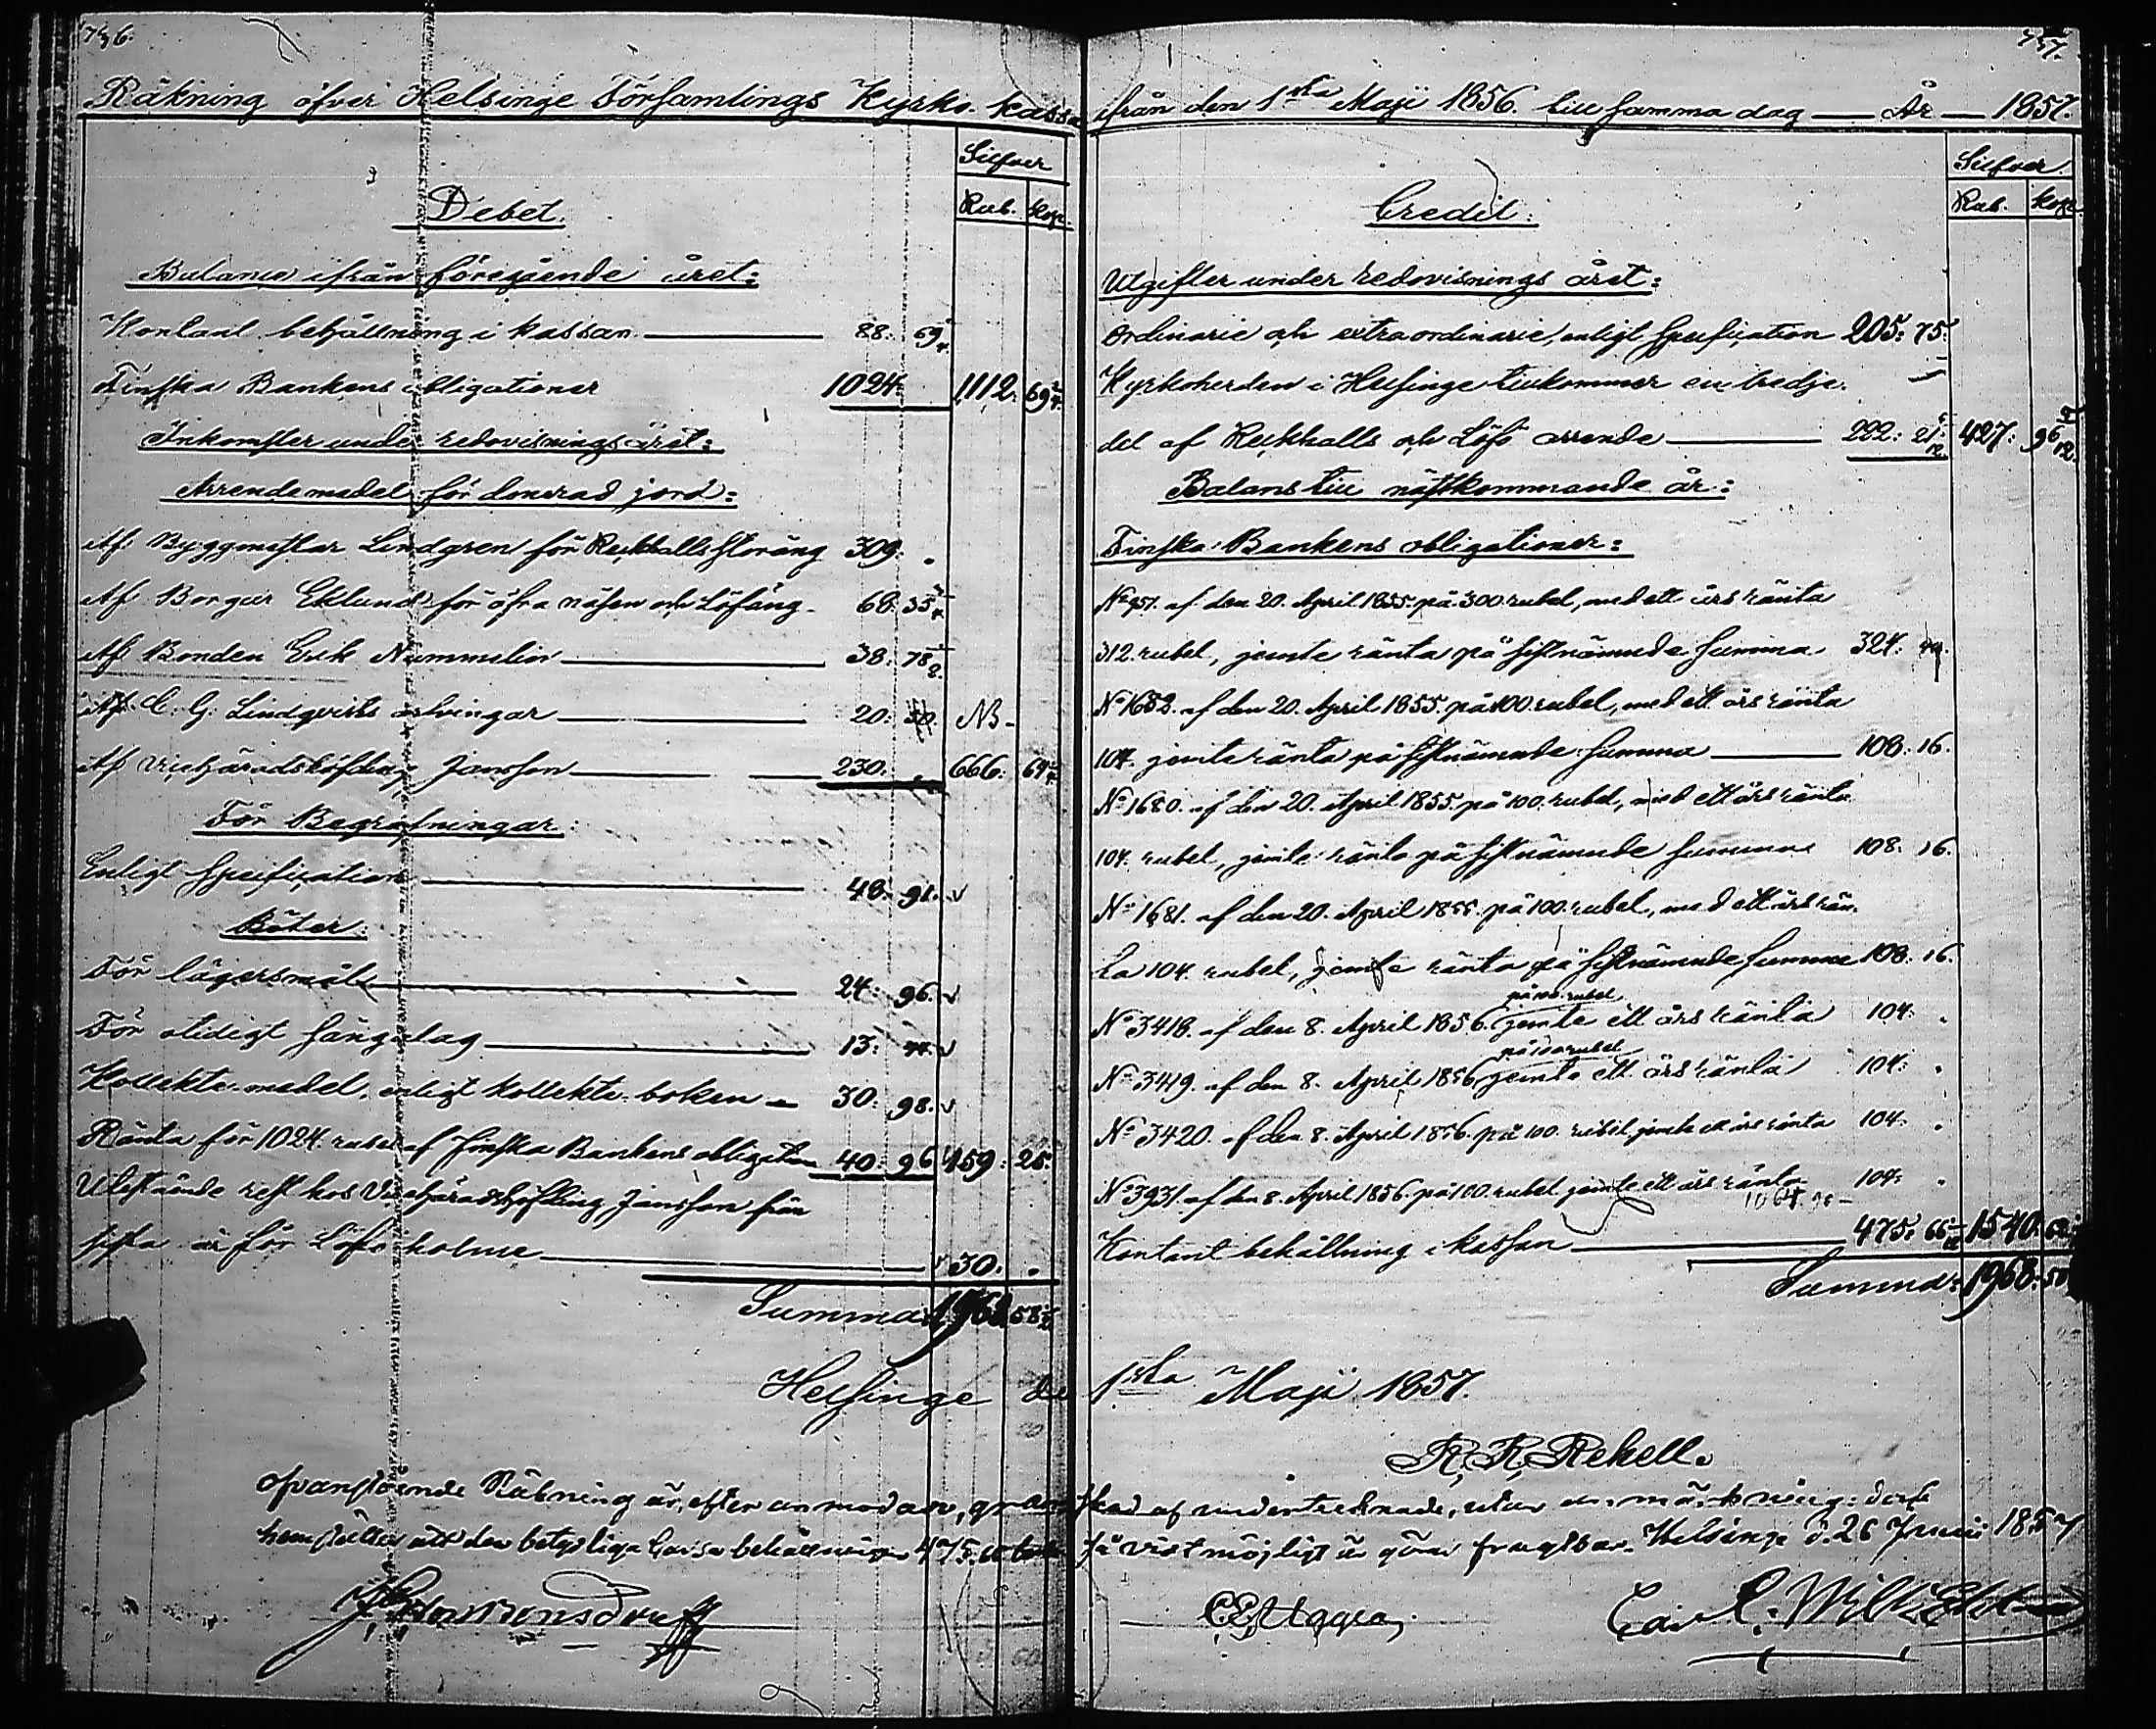 736.
Räkning öfver Helsinge Församlings Kyrko-kassa
Silfver
Debet.
Rub. Kop.
Balance ifrån föregående året:
Kontant behållning i kassan 88: 69
Finska Bankens obligationer 1024: 1112: 69
Inkomster under redovisnings året:
Arrendemedel för donerad jord:
Af Byggmästar Lindgren för Reckhalls storäng 309: .
Af Borgar Eklund för öfra näsen och Löfäng 68: 35
Af Bonden Erik Nummelin 38: 78
Af C. G. Lindqvists arfvingar 20: NB
Af Vicehäradshöfding Jansson 230: 666: 64
För Begrafningar:
Enligt specification 48: 91.
Böter:
För lägersmål 24: 96.
För otidigt sängelag 13: 44.
Kollekte-medel, enligt kollekte-boken 30: 98.
Ränta för 1024 rubel af finska Bankens obligation 40: 96 159: 25.
Utestående rest hos Vicehäradshöfding Jansson från
sista år för Löfö holme 30: .
Summa 1968 58
Helsinge de
757.
ifrån den 1sta Maji 1856. till samma dag — År — 1857.
Silfver.
Credit:
Rub. Kop.
Utgifter under redovisnings året:
Ordinarie och extraordinarie, enligt specification 205: 75:
Kyrkoherden i Helsinge tillkommer en tredje.
del af Reckhalls och Löfö arrende 222: 21 427: 96
Balans till nästkommande år:
Finska Bankens obligationer:
No 957. af den 20. April 1855. på 300 rubel, med ett års ränta
312. rubel, jemte ränta på sistnämnde summa 324:
No 1652. af den 20. April 1855. på 100. rubel, med ett års ränta
104. jemte ränta på sistnämnde summa 108: 16.
No 1680. af den 20. April 1855. på 100. rubel, med ett års ränta
104. rubel, jemte ränta på sistnämnde summa 108: 16.
No 1681. af den 20. April 1855. på 100. rubel, med ett års rän-
ta 104. rubel, jemte ränta på sistnämnde summa 108: 16.
på 100. rubel
No 3418. af den 8. April 1856. jemte ett års ränta 104: .
på 100 rubel
No 3419. af den 8. April 1856. jemte ett års ränta 104: .
No 3420. af den 8. April 1856. på 100. rubel jemte ett års ränta 104: .
No 3931. af den 8. April 1856. på 100. rubel jemte ett års ränta 104: .
1064.
Kontant behållning i kassan 475: 66 1540: 62
Summa: 1968: 58
1sta Maji 1857.
R. R. Rehell.
Ofvanstående Räkning är, efter anmodan, granskad af undertecknade, utan anmärkning: dock
hemställes att den betydliga Cassa behållningen 475. 66 så vidt möjligt är göres fruktbar. Helsinge d. 26 Junii 1857
C E Uggla